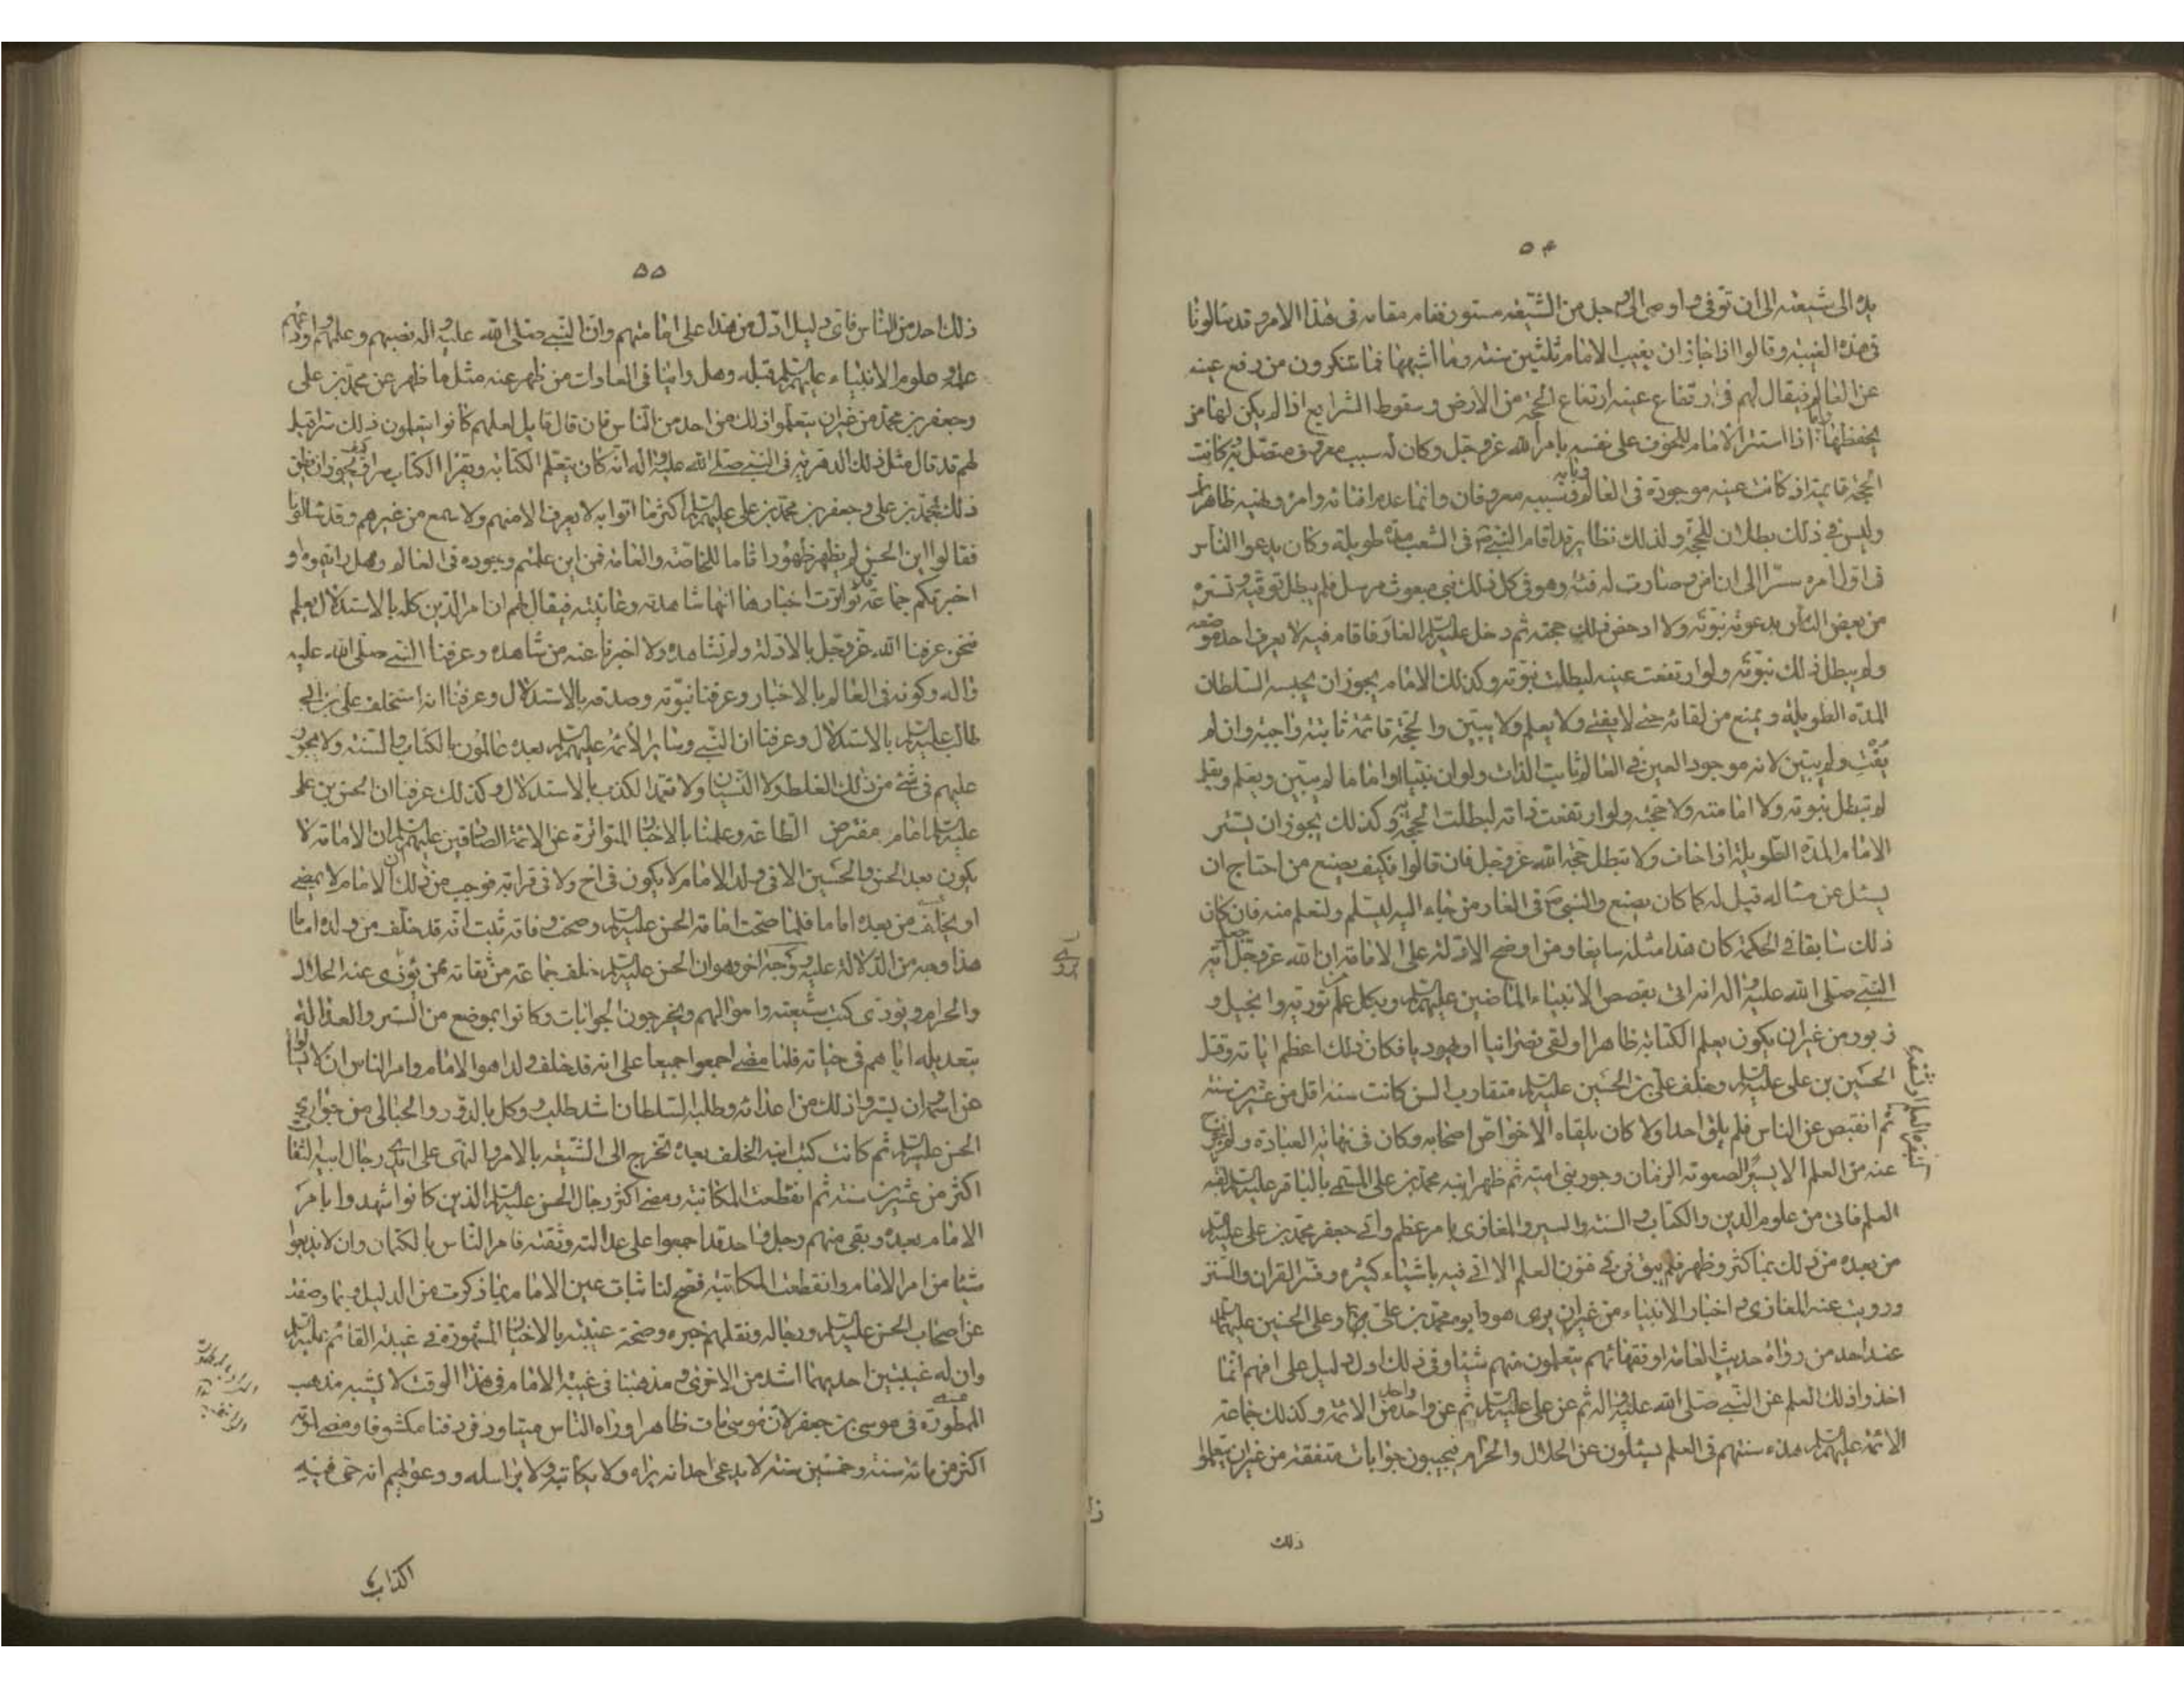 ٥۴
يده الى شيعته الى ان توفى واوصى الى رجل من الشيعة مستور فقام مقامه فى هذا الامر وقد سالونا
فى هذه الغيبة وقالوا اذا جاز ان يغيب الامام ثلثين سنة وما اشبهها فما تنكرون من رفع عينه
عن العالم فيقال لهم فى ارتفاع عينه ارتفاع الحجة من الارض وسقوط الشرايع اذا لم يكن لها من
يحفظها واما اذا استتر الامام للخوف على نفسه بامر الله عز وجل وكان له سبب معروف متصل به كانت
الحجة قايمة اذ كانت عينه موجودة فى العالم وبابه وسببه معروفان وانما عدم افتائه وامره ونهيه ظاهرا
وليس فى ذلك بطلان للحجة ولذلك نظاير قد اقام النبى ص فى الشعب مدة طويلة وكان يدعو الناس
فى اول امره سرا الى ان امن وصارت له فئة وهو فى كل ذلك نبى مبعوث مرسل فلم يبطل توقيه وتستره
من بعض الناس بدعوته نبوته ولا ادحض ذلك حجته ثم دخل عليه السلام الغار فاقام فيه لا يعرف احد موضعه
ولم يبطل ذلك نبوته ولو ارتفعت عينه لبطلت نبوته وكذلك الامام يجوز ان يحبسه السلطان
المدة الطويلة ويمنع من لقائه حتى لا يفتى ولا يعلم ولا يبين والحجة قائمة ثابتة واجبة وان لم
يفت ولم يبين لانه موجود العين فى العالم ثابت الذات ولو ان نبيا او اماما لم يبين ويعلم ويفت
لم تبطل نبوته ولا امامته ولا حجته ولو ارتفعت ذاته لبطلت الحجة وكذلك يجوز ان يستتر
الامام المدة الطويلة اذا خاف ولا تبطل حجة الله عز وجل فان قالوا فكيف يصنع من احتاج ان
يسئل عن مسالة قيل له كما كان يصنع والنبى ص فى الغار من جاء اليه ليسلم وليتعلم منه فان كان
ذلك سايغا فى الحكمة كان هذا مثله سايغا ومن اوضح الادلة على الامامة ان الله عز وجل جعل اية
النبى صلى الله عليه واله انه اتى بقصص الانبياء الماضين عليهم السلام وبكل علم من تورية وانجيل و
زبور من غير ان يكون يعلم الكتابة ظاهرا او لقى نصرانيا او يهوديا فكان ذلك اعظم اياته وقتل
الحسين بن على عليه السلام وخلف على بن الحسين عليه السلام متقارب السن كانت سنه اقل من عشرين سنة
ثم انقبض عن الناس فلم يلق احدا ولا كان يلقاه الا خواص اصحابه وكان فى نهاية العبادة ولم يخرج
عنه من العلم الا يسيرا لصعوبة الزمان وجور بنى امية ثم ظهر ابنه محمد بن على المسمى بالباقر عليه السلام لفتقه
العلم فاتى من علوم الدين والكتاب والسنة والسير والمغازى بامر عظيم واتى جعفر بن محمد بن على عليه السلام
من بعده من ذلك بما كثر وظهر فلم يبق فن فى فنون العلم الا اتى فيه باشياء كثيرة وفسر القران والسنن
ورويت عنه المغازى واخبار الانبياء من غير ان يرى هو وابوه محمد بن على وعلى بن الحسين عليهم السلام
عند احد من رواة حديث العامة او فقهائهم يتعلمون منهم شيئا وفى ذلك اول دليل على انهم انما
اخذوا ذلك العلم عن النبى صلى الله عليه واله ثم عن على عليه السلام ثم عن واحد واحد من الائمة وكذلك جماعة
الائمة عليهم السلام هذه سنتهم فى العلم يسئلون عن الحلال والحرام فيجيبون جوابات متفقة من غير ان يتعلموا
ذلك
٥٥
ذلك احد من الناس فاى دليل ادل من هذا على امامتهم وان النبى صلى الله عليه واله نصبهم وعلمهم واودعهم
علمه وعلوم الانبياء عليهم السلام قبله وهل راينا فى العادات من ظهر عنه مثل ما ظهر عن محمد بن على
وجعفر بن محمد من غير ان يتعلموا ذلك من احد من الناس فان قال قايل لعلهم كانوا يتعلمون ذلك سرا قيل
لهم قد قال مثل ذلك الدهرية فى النبى صلى الله عليه واله انه كان يتعلم الكتابة ويقرا الكتاب سرا وكيف يجوز ان يظن
ذلك بمحمد بن على وجعفر بن محمد بن على عليهم السلام واكثر ما اتوا به لا يعرف الا منهم ولا سمع من غيرهم وقد سالونا
فقالوا ابن الحسن لم يظهر ظهورا تاما للخاصة والعامة فمن اين علمتم وجوده فى العالم وهل رايتموه او
اخبرتكم جماعة قد تواترت اخبارها انها شاهدته وعاينته فيقال لهم ان امر الدين كله بالاستدلال يعلم
فنحن عرفنا الله عز وجل بالادلة ولم نشاهده ولا اخبرنا عنه من شاهده وعرفنا النبى صلى الله عليه
واله وكونه فى العالم بالاخبار وعرفنا نبوته وصدقه بالاستدلال وعرفنا انه استخلف على بن ابى
طالب عليه السلام بالاستدلال وعرفنا ان النبى وساير الائمة عليهم السلام بعده عالمون بالكتاب والسنة ولا يجوز
عليهم فى شئ من ذلك الغلط ولا النسيان ولا تعمد الكذب بالاستدلال وكذلك عرفنا ان الحسن بن على
عليه السلام امام مفترض الطاعة وعلمنا بالاخبار المتواترة عن الائمة الصادقين عليهم السلام ان الامامة لا
يكون بعد الحسن والحسين الا فى ولد الامام لا يكون فى اخ ولا فى قرابة فوجب من ذلك ان الامام لا يمضى
او يخلف من بعده اماما فلما صحت امامة الحسن عليه السلام وصحت وفاته ثبت انه قد خلف من ولده اماما
هذا وجه من الدلالة عليه ووجه اخر وهو ان الحسن عليه السلام خلف جماعة من ثقاته ممن يؤدى عنه الحلال
والحرام ويؤدى كتب شيعته واموالهم ويخرجون الجوابات وكانوا بموضع من الستر والعدالة
بتعديله اياهم فى حياته فلما مضى اجمعوا جميعا على انه قد خلف ولدا هو الامام وامر الناس ان لا يسالوا
عن اسمه وان يستروا ذلك من اعدائه وطلبه السلطان اشد طلب ووكل بالدور والحبالى من جوارى
الحسن عليه السلام ثم كانت كتب ابنه الخلف بعده تخرج الى الشيعة بالامر والنهى على ايدى رجال ابيه الثقات
اكثر من عشرين سنة ثم انقطعت المكاتبة ومضى اكثر رجال الحسن عليه السلام الذين كانوا شهدوا بامر
الامام بعده وبقى منهم رجل واحد قد اجمعوا على عدالته وثقته فامر الناس بالكتمان وان لا يذيعوا
شيئا من امر الامام وانقطعت المكاتبة فصح لنا ثبات عين الامام بما ذكرت من الدليل وبما وصفت
عن اصحاب الحسن عليه السلام ورجاله ونقلهم خبره وصحة غيبته بالاخبار المشهورة فى غيبة القائم عليه السلام
وان له غيبتين احديهما اشد من الاخرى ومذهبنا فى غيبة الامام فى هذا الوقت لا يشبه مذهب
الممطورة فى موسى بن جعفر لان موسى مات ظاهرا وراه الناس ميتا ودفن دفنا مكشوفا ومضى لموته
اكثر من مائة سنة وخمسين سنة لا يدعى احد انه يراه ولا يكاتبه ولا يراسله ودعوايهم انه حى فيه
اكذاب